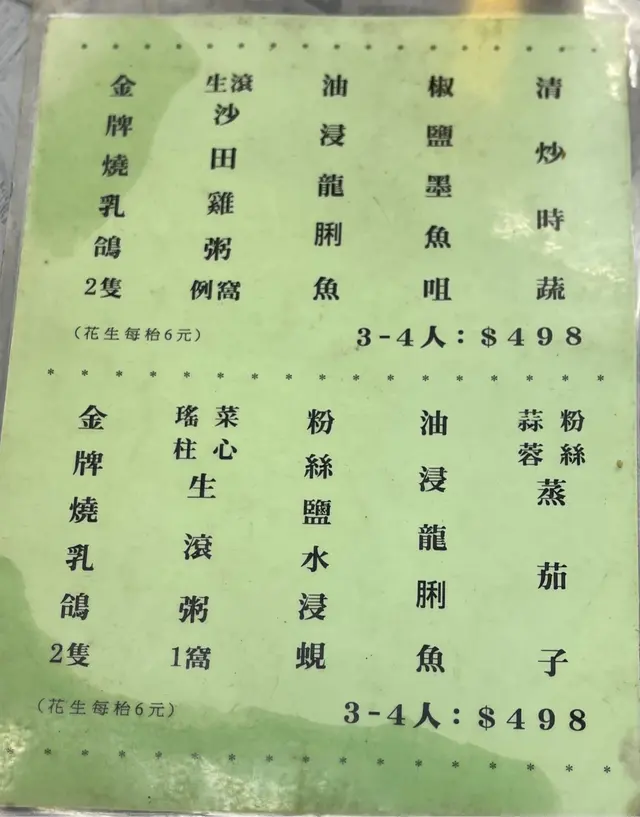 金牌燒乳鴿2隻
生滾沙田雞粥例窩
油浸龍脷魚
椒鹽墨魚咀
清炒時蔬
(花生每枱6元)
3-4人：$498
金牌燒乳鴿2隻
瑤柱菜心生滾粥1窩
粉絲鹽水浸蜆
油浸龍脷魚
蒜蓉粉絲蒸茄子
(花生每枱6元)
3-4人：$498